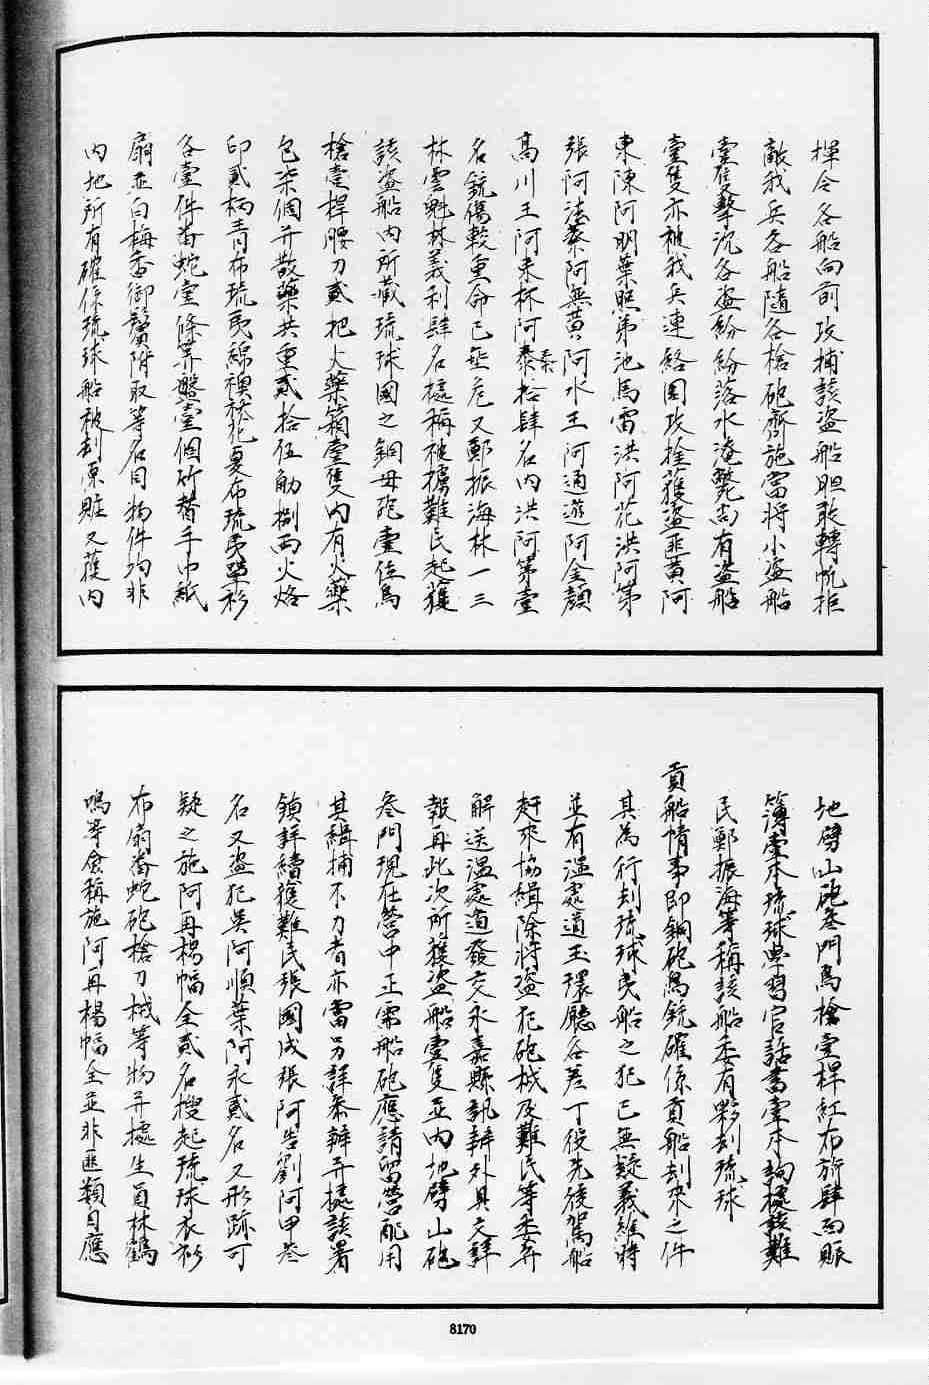 揮令各船向前攻捕該盜船胆敢轉帆拒
敵我兵各船隨各槍砲齊施當將小盜船
壹隻擊沉各盜紛紛落水淹斃尚有盜船
壹隻亦被我兵連絡圍攻拴獲盜匪黃阿
東陳阿明葉熙弟池馬雷洪阿花洪阿第
張阿法蔡阿無黃阿水王阿通遊阿金顏
高川王阿禾林阿泰等拾肆名內洪阿第壹
名銃傷較重命已垂危又鄭振海林一三
林雲魁林義利肆名據稱被擄難民起獲
該盜船內所藏琉球國之銅母砲壹位鳥
槍壹桿腰刀貳把火藥箱壹隻內有火藥
包柒個并散藥共重貳拾伍觔捌兩火烙
印貳柄青布琉夷綿襖袱花夏布琉夷單衫
各壹件畨蛇壹條算盤壹個竹聱手巾紙
扇並白梅香御鬢附取等名目物件均非
內地所有確係琉球船被刦原賍又獲內
地劈山砲叁門鳥槍壹桿紅布旂肆面賬
簿壹本琉球學習官話書壹本詢據該難
民鄭振海等稱該船委有夥刦琉球
貢船情事即銅砲鳥銃確係貢船刦來之件
其為行刦琉球夷船之犯已無疑義維時
並有溫處道玉環廳各差丁役先後駕船
趕來協緝除將盜犯砲械及難民等委弁
解送溫處道發交永嘉縣訊辦外具文詳
報再此次所獲盜船壹隻並內地劈山砲
叁門現在營中正需船砲應請留營配用
其緝捕不力者亦當另詳叅辦并據該署
鎮詳續獲難民張國成張阿嵤劉阿甲叁
名又盜犯吳阿順葉阿永貳名又形跡可
疑之施阿再楊幅全貳名搜起琉球衣衫
布扇畨蛇砲槍刀械等物并據生員林鶴
鳴等僉稱施阿再楊幅全並非匪類自應
8170